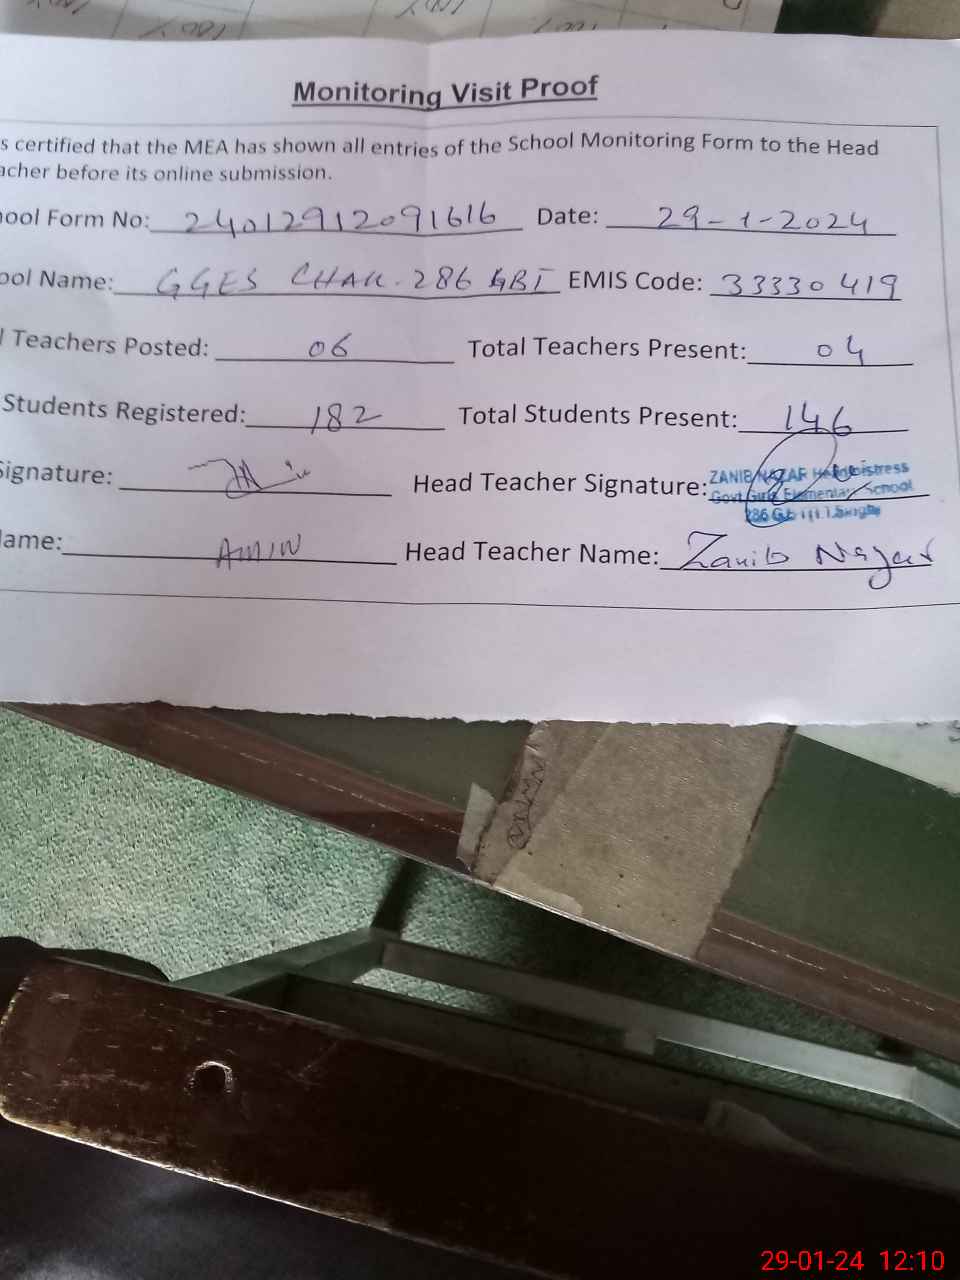 Monitoring Visit Proof
s certified that the MEA has shown all entries of the School Monitoring Form to the Head
acher before its online submission.
ool Form No: 24012912091616 Date: 29-1-2024
ool Name: GGES CHAK-286 GBI EMIS Code: 33330419
l Teachers Posted: 06 Total Teachers Present: 04
Students Registered: 182 Total Students Present: 146
Signature: Head Teacher Signature: ZANIB NAZAR Headmistress
Govt Girls Elementary School
286 Gb
ame: AMIN Head Teacher Name: Zanib Nazar
29-01-24 12:10